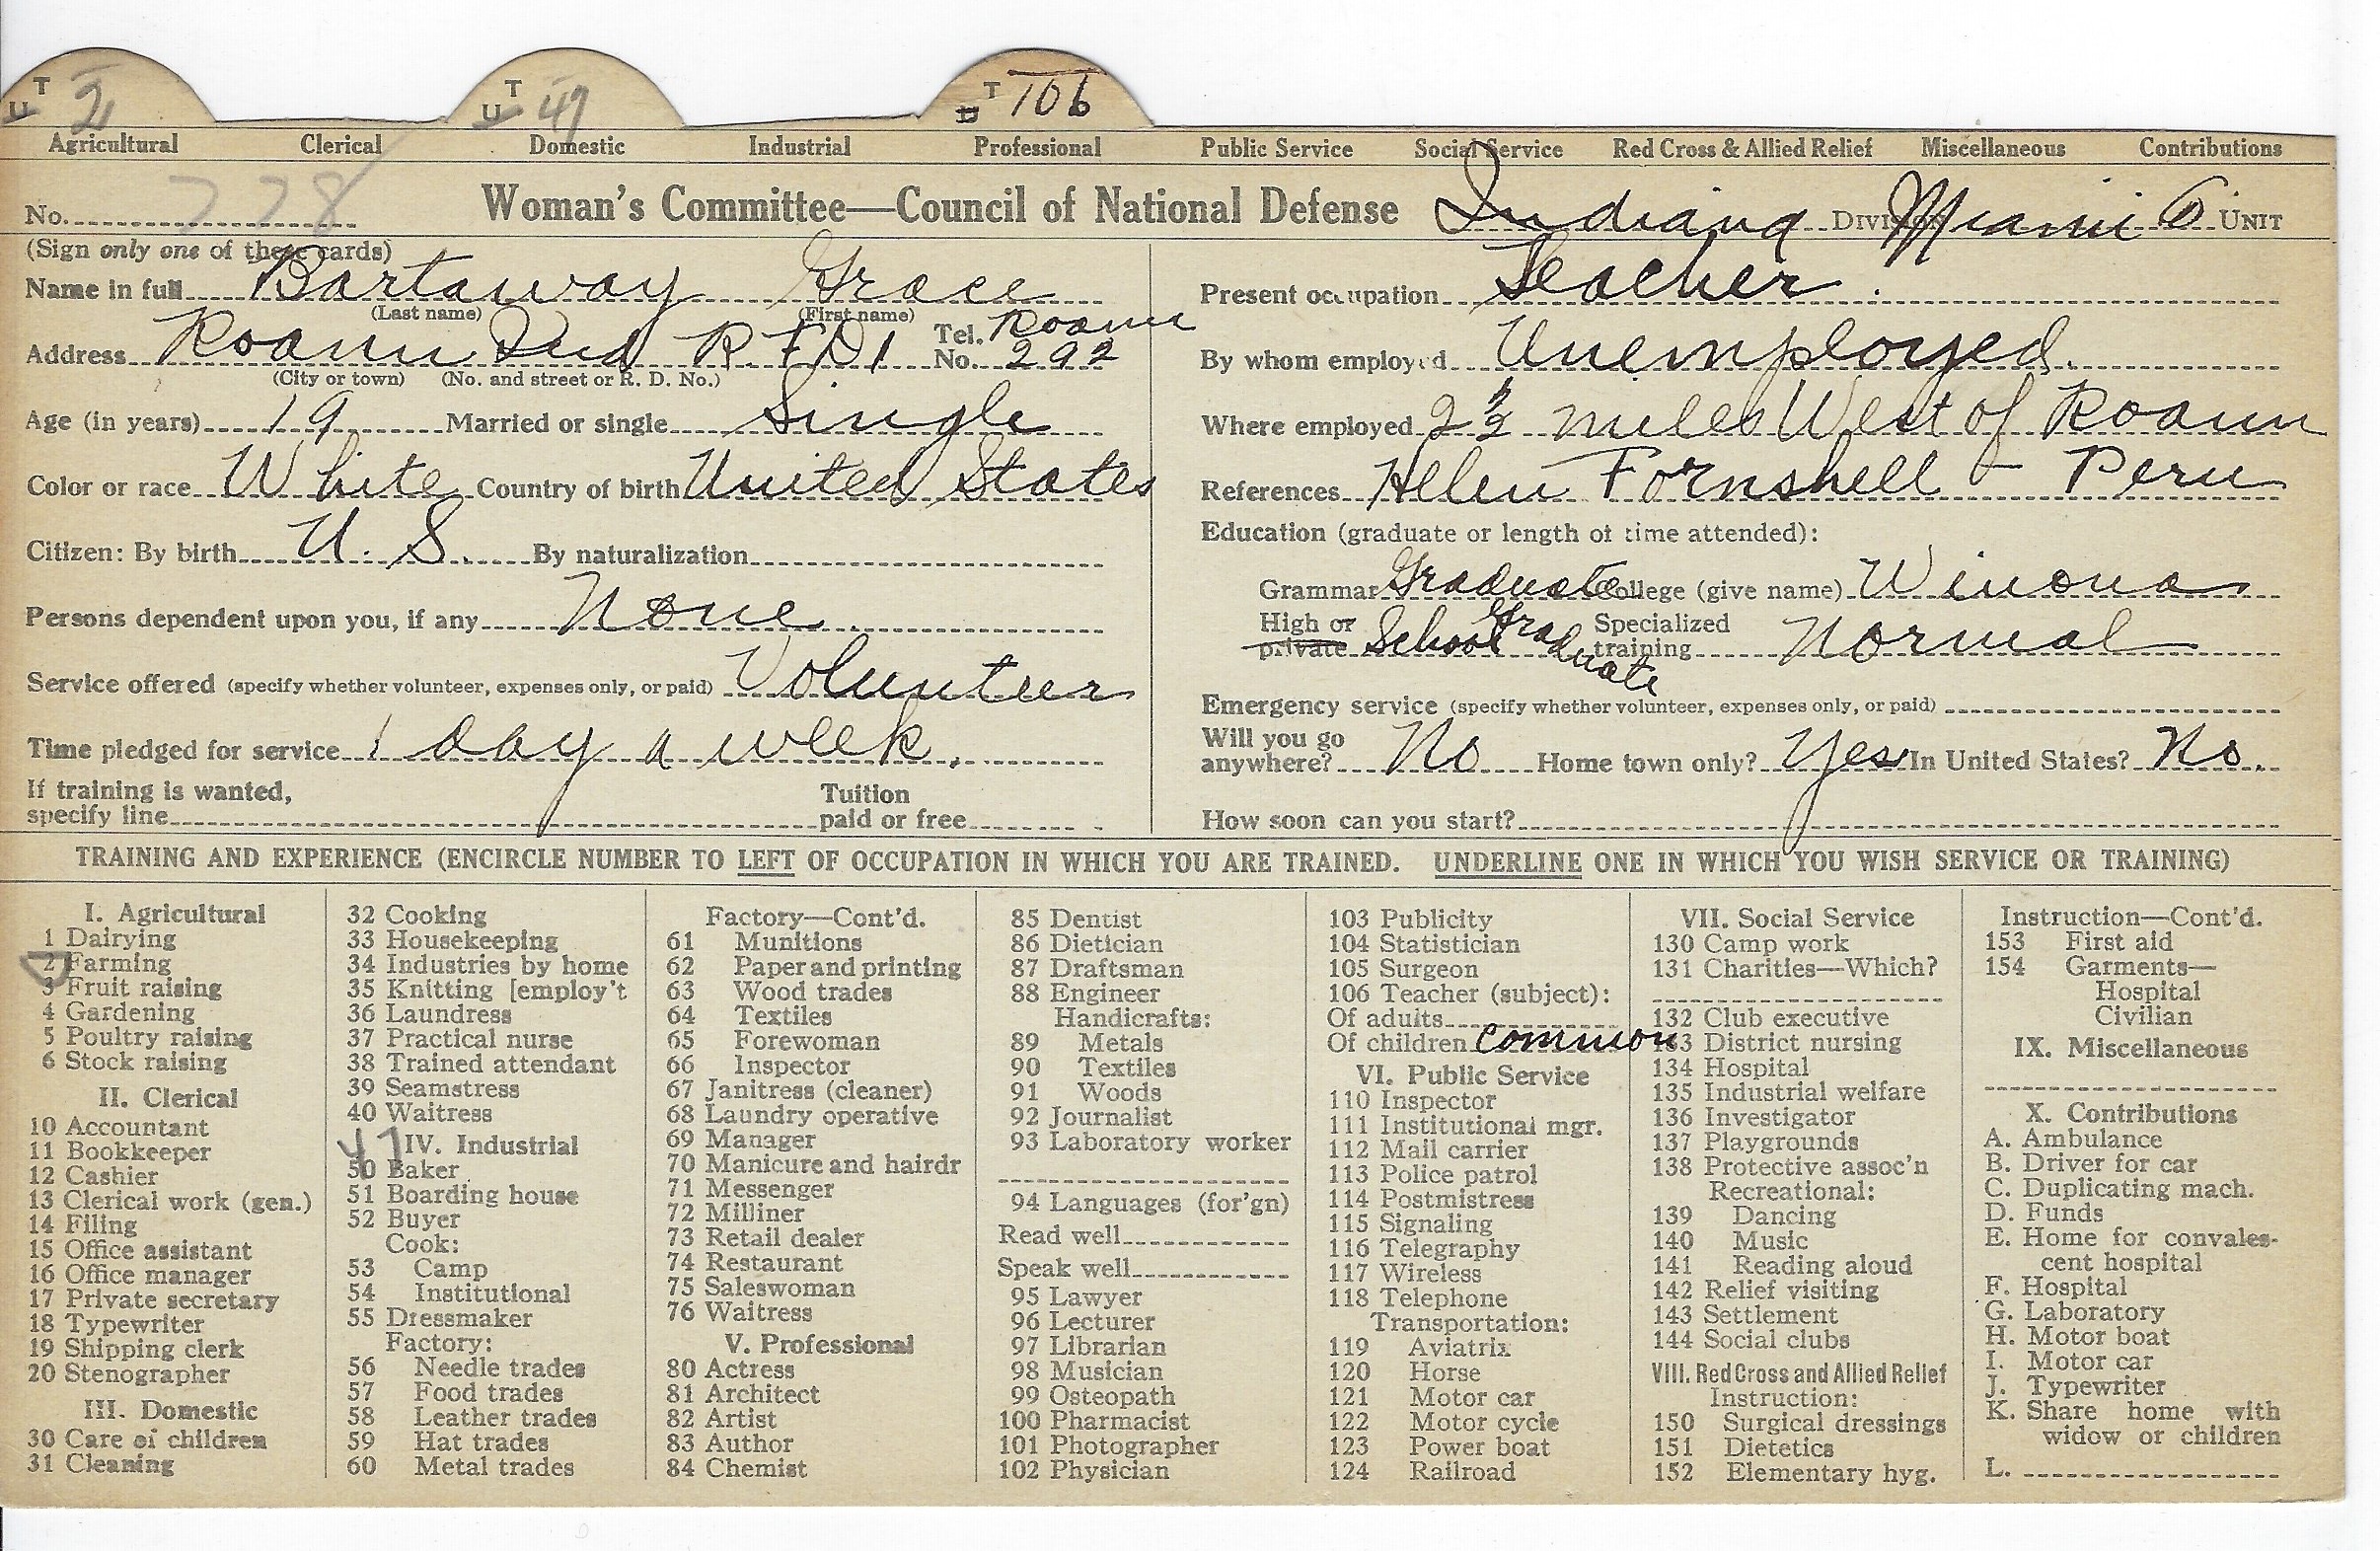 T U 2 T U 47 T U 106
Agricultural Clerical Domestic Industrial Professional Public Service Social Service Red Cross & Allied Relief Miscellaneous Contributions
No. 728 Woman's Committee—Council of National Defense Indiana DIVISION Miami 6 UNIT
(Sign only one of these cards)
Name in full Bartaway Grace
(Last name) (First name)
Address Roann Ind R.F.D 1 Tel. No. Roann 292
(City or town) (No. and street or R. D. No.)
Age (in years) 19 Married or single Single
Color or race White Country of birth United States
Citizen: By birth U. S. By naturalization
Persons dependent upon you, if any None
Service offered (specify whether volunteer, expenses only, or paid) Volunteer
Time pledged for service 1 day a week.
If training is wanted, specify line Tuition paid or free
Present occupation Teacher.
By whom employed Unemployed.
Where employed 2 1/2 miles West of Roann
References Helen Fornshell - Peru
Education (graduate or length of time attended):
Grammar Graduate College (give name) Winona
High or private School Graduate Specialized training Normal
Emergency service (specify whether volunteer, expenses only, or paid)
Will you go anywhere? No Home town only? Yes In United States? No.
How soon can you start?
TRAINING AND EXPERIENCE (ENCIRCLE NUMBER TO LEFT OF OCCUPATION IN WHICH YOU ARE TRAINED. UNDERLINE ONE IN WHICH YOU WISH SERVICE OR TRAINING)
I. Agricultural
1 Dairying
2 Farming
3 Fruit raising
4 Gardening
5 Poultry raising
6 Stock raising
II. Clerical
10 Accountant
11 Bookkeeper
12 Cashier
13 Clerical work (gen.)
14 Filing
15 Office assistant
16 Office manager
17 Private secretary
18 Typewriter
19 Shipping clerk
20 Stenographer
III. Domestic
30 Care of children
31 Cleaning
32 Cooking
33 Housekeeping
34 Industries by home
35 Knitting [employ't
36 Laundress
37 Practical nurse
38 Trained attendant
39 Seamstress
40 Waitress
47 IV. Industrial
50 Baker
51 Boarding house
52 Buyer
Cook:
53 Camp
54 Institutional
55 Dressmaker
Factory:
56 Needle trades
57 Food trades
58 Leather trades
59 Hat trades
60 Metal trades
Factory—Cont'd.
61 Munitions
62 Paper and printing
63 Wood trades
64 Textiles
65 Forewoman
66 Inspector
67 Janitress (cleaner)
68 Laundry operative
69 Manager
70 Manicure and hairdr
71 Messenger
72 Milliner
73 Retail dealer
74 Restaurant
75 Saleswoman
76 Waitress
V. Professional
80 Actress
81 Architect
82 Artist
83 Author
84 Chemist
85 Dentist
86 Dietician
87 Draftsman
88 Engineer
Handicrafts:
89 Metals
90 Textiles
91 Woods
92 Journalist
93 Laboratory worker
94 Languages (for'gn)
Read well
Speak well
95 Lawyer
96 Lecturer
97 Librarian
98 Musician
99 Osteopath
100 Pharmacist
101 Photographer
102 Physician
103 Publicity
104 Statistician
105 Surgeon
106 Teacher (subject):
Of adults
Of children common
VI. Public Service
110 Inspector
111 Institutional mgr.
112 Mail carrier
113 Police patrol
114 Postmistress
115 Signaling
116 Telegraphy
117 Wireless
118 Telephone
Transportation:
119 Aviatrix
120 Horse
121 Motor car
122 Motor cycle
123 Power boat
124 Railroad
VII. Social Service
130 Camp work
131 Charities—Which?
132 Club executive
133 District nursing
134 Hospital
135 Industrial welfare
136 Investigator
137 Playgrounds
138 Protective assoc'n
Recreational:
139 Dancing
140 Music
141 Reading aloud
142 Relief visiting
143 Settlement
144 Social clubs
VIII. Red Cross and Allied Relief
Instruction:
150 Surgical dressings
151 Dietetics
152 Elementary hyg.
Instruction—Cont'd.
153 First aid
154 Garments—
Hospital
Civilian
IX. Miscellaneous
X. Contributions
A. Ambulance
B. Driver for car
C. Duplicating mach.
D. Funds
E. Home for convales-
cent hospital
F. Hospital
G. Laboratory
H. Motor boat
I. Motor car
J. Typewriter
K. Share home with
widow or children
L.